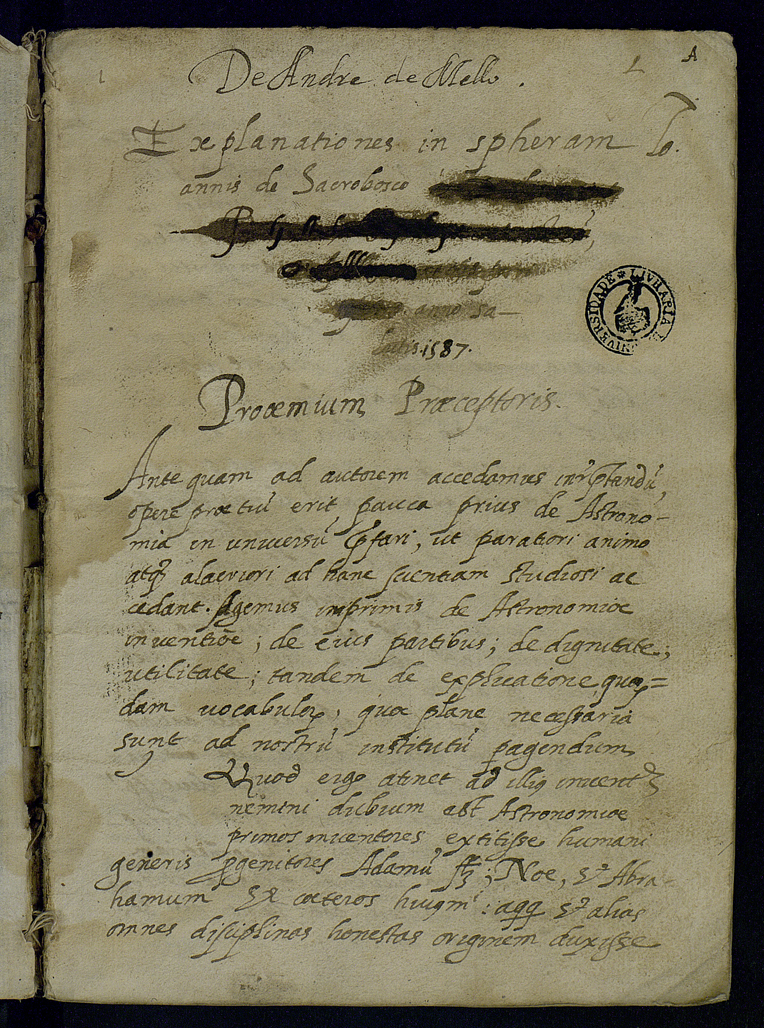 A
De Andre de Mello.
Explanationes in spheram Io.
annis de Sacrobosco
anno sa-
lutis 1587.
LIVRARIA DA UNIVERSIDADE
Proœmium Præceptoris.
Ante quam ad autorem accedamus
operæ prætiũ erit pauca prius de Astrono-
mia in universũ ut paratiori animo
atq; alacriori ad hanc scientiam studiosi ac
cedant. Agemus inprimis de Astronomiæ
inventiõe; de eius partibus; de dignitate,
utilitate; tandem de explicatione quar=
dam vocabulor, quæ plane necessaria
sunt ad nostrũ institutũ pagendum
Quod ergo atinet ad
nemini dubium est Astronomiæ
primos inventores extitisse humani
generis pgenitores Adamũ; Noe, & Abra-
hamum & cæteros & alias
omnes disciplinas honestas originem duxisse